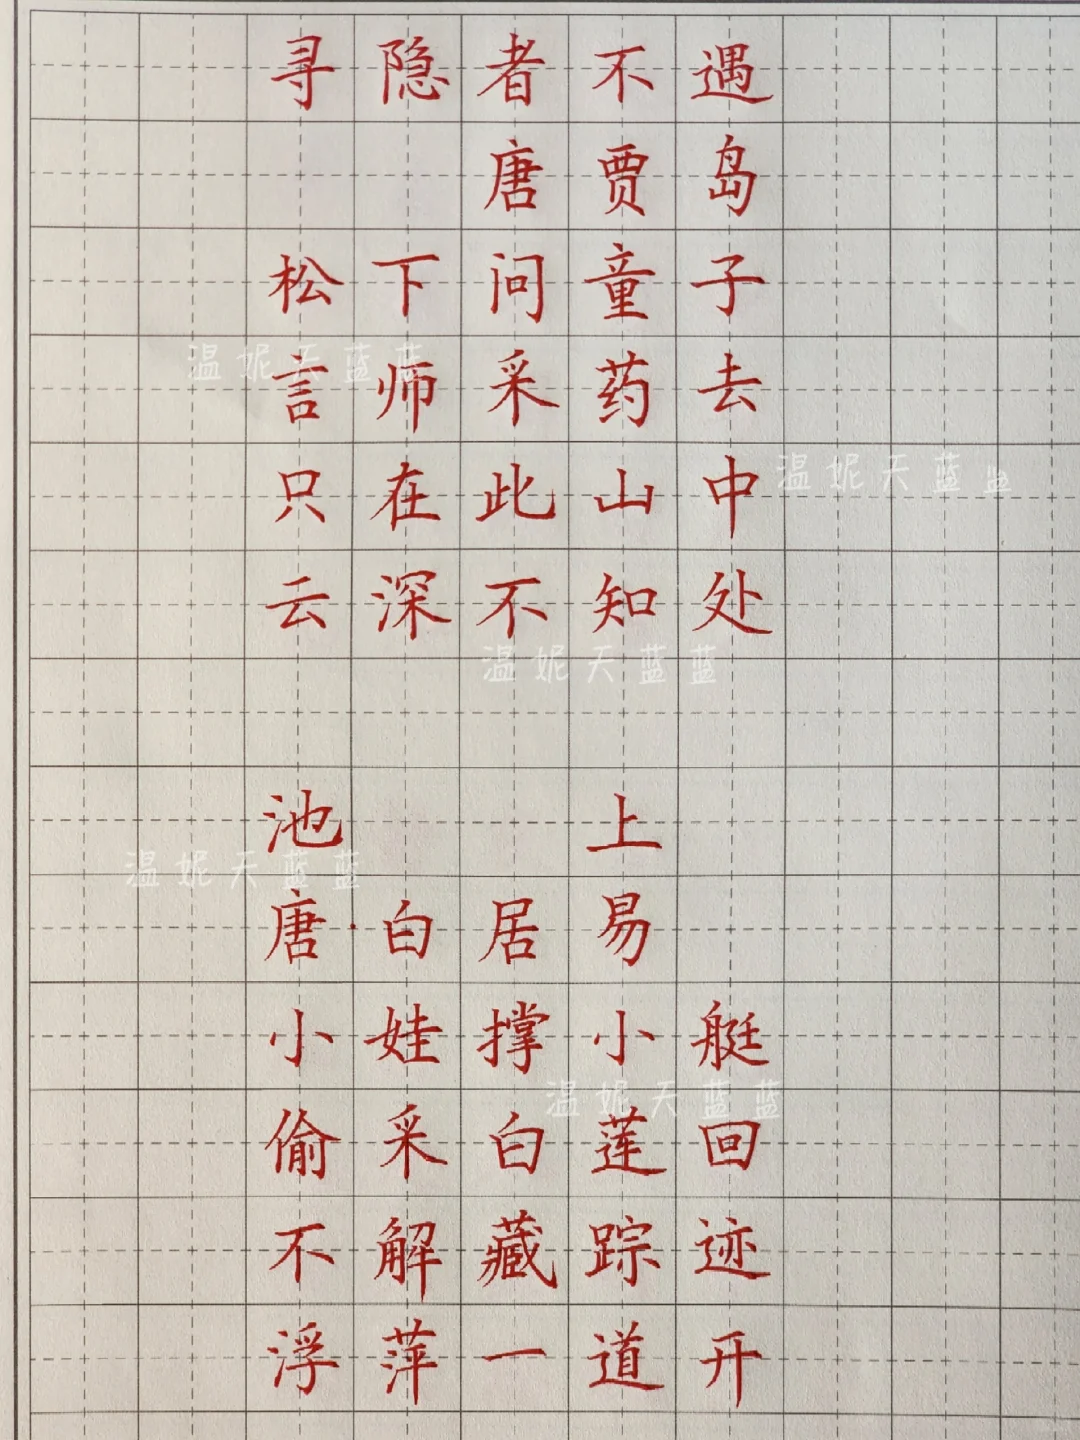 寻隐者不遇
唐贾岛
松下问童子
言师采药去
只在此山中
云深不知处
池上
唐·白居易
小娃撑小艇
偷采白莲回
不解藏踪迹
浮萍一道开
温妮天蓝蓝
温妮天蓝蓝
温妮天蓝蓝
温妮天蓝蓝
温妮天蓝蓝